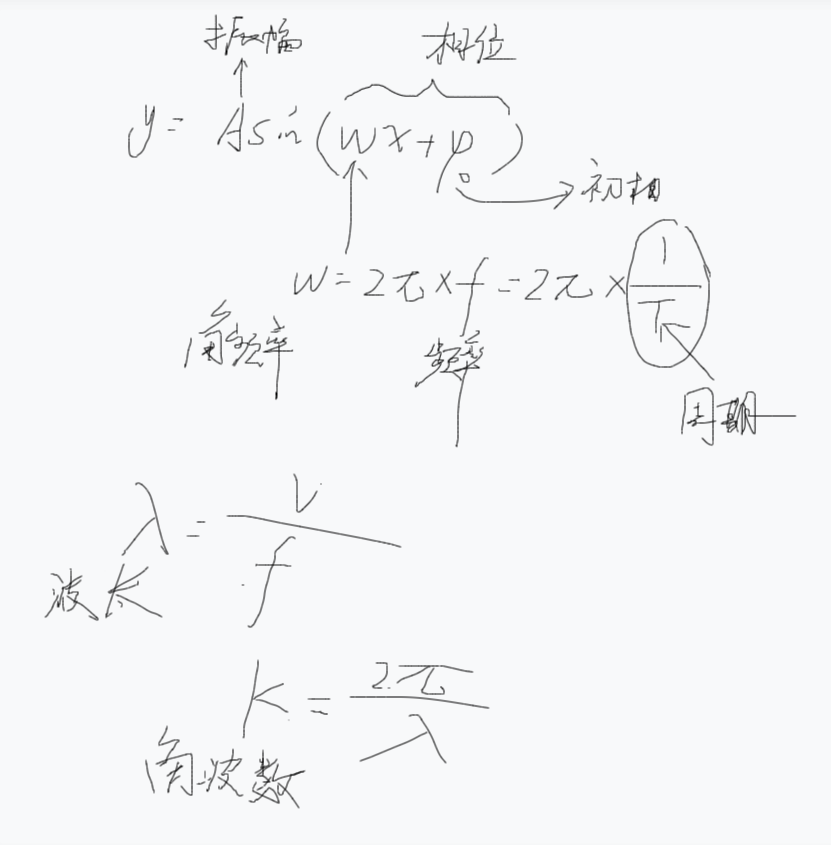 振幅 相位
y = Asin(wx+φ₀)
初相
w = 2π×f = 2π×1/T
角频率 频率
周期
λ = v/f
波长
k = 2π/λ
角波数